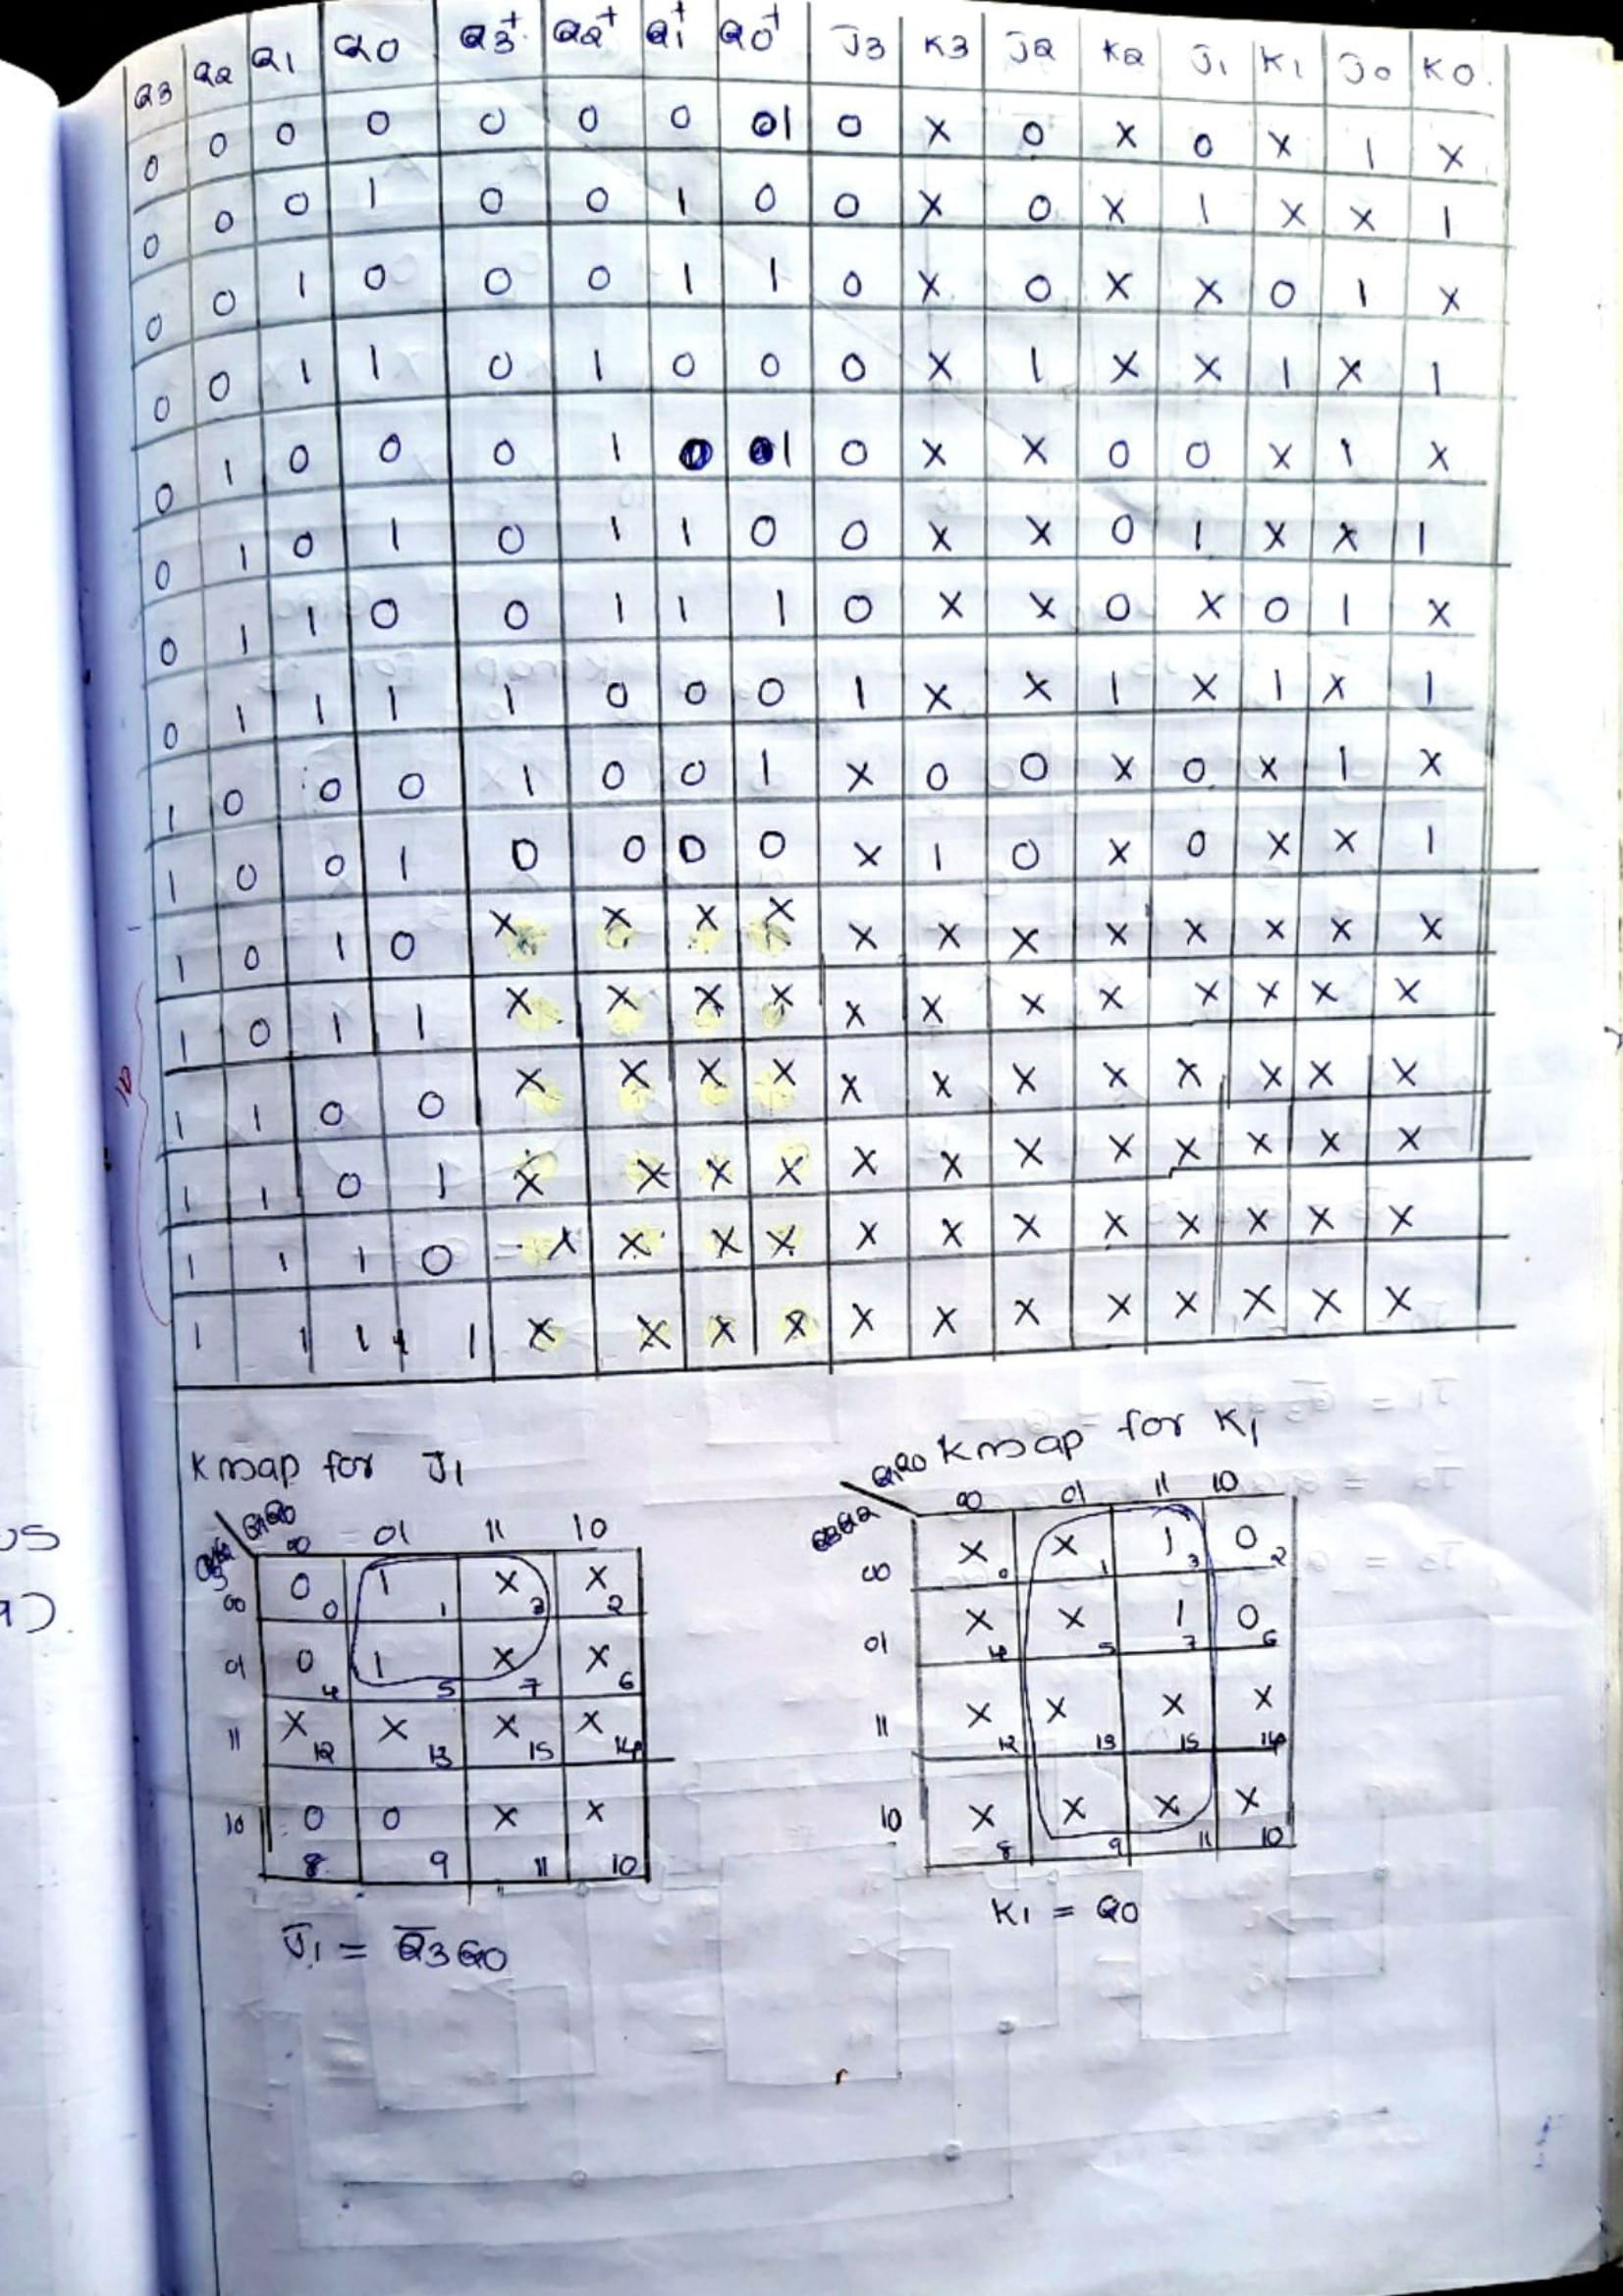 Q3 Q2 Q1 Q0 Q3+ Q2+ Q1+ Q0+ J3 K3 J2 K2 J1 K1 J0 K0
0 0 0 0 0 0 0 1 0 X 0 X 0 X 1 X
0 0 0 1 0 0 1 0 0 X 0 X 1 X X 1
0 0 1 0 0 0 1 1 0 X 0 X X 0 1 X
0 0 1 1 0 1 0 0 0 X 1 X X 1 X 1
0 1 0 0 0 1 0 1 0 X X 0 0 X 1 X
0 1 0 1 0 1 1 0 0 X X 0 1 X X 1
0 1 1 0 0 1 1 1 0 X X 0 X 0 1 X
0 1 1 1 1 0 0 0 1 X X 1 X 1 X 1
1 0 0 0 1 0 0 1 X 0 0 X 0 X 1 X
1 0 0 1 0 0 0 0 X 1 0 X 0 X X 1
1 0 1 0 X X X X X X X X X X X X
1 0 1 1 X X X X X X X X X X X X
1 1 0 0 X X X X X X X X X X X X
1 1 0 1 X X X X X X X X X X X X
1 1 1 0 X X X X X X X X X X X X
1 1 1 1 X X X X X X X X X X X X
K map for J1
Q1Q0
00 01 11 10
00 0 0 1 1 X 3 X 2
01 0 4 1 5 X 7 X 6
11 X 12 X 13 X 15 X 14
10 0 8 0 9 X 11 X 10
J1 = Q̅3Q0
K map for K1
Q1Q0
Q3Q2
00 01 11 10
00 X 0 X 1 1 3 0 2
01 X 4 X 5 1 7 0 6
11 X 12 X 13 X 15 X 14
10 X 8 X 9 X 11 X 10
K1 = Q0